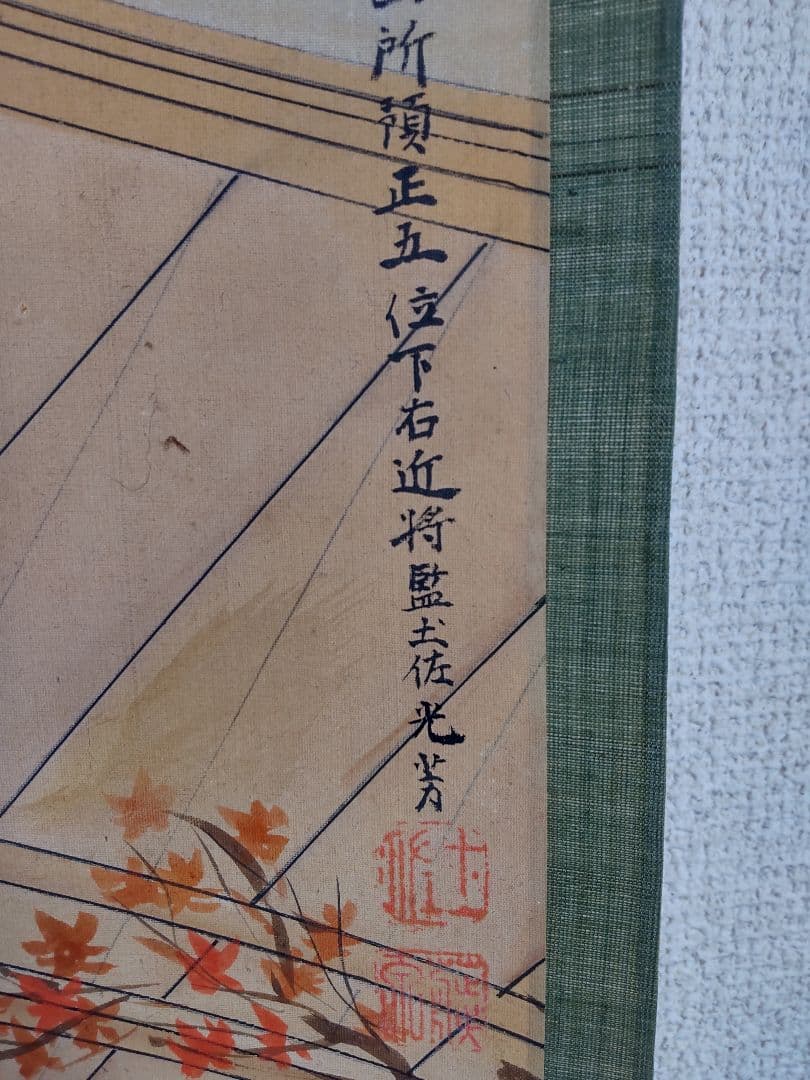 所預正五位下右近将監土佐光芳